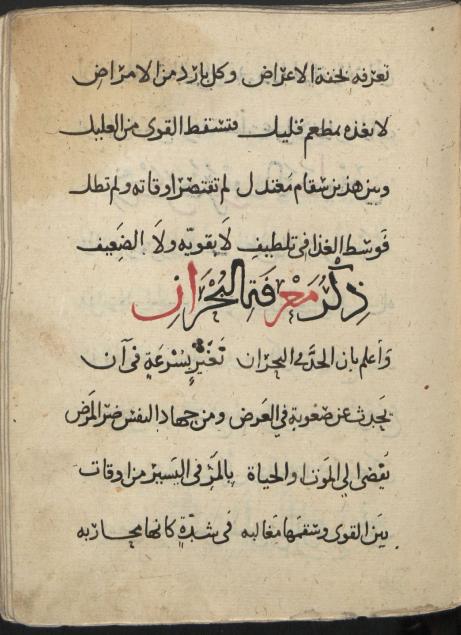 تعرفه لخفة الاعراض وكل بارد من الامراض
لا تغذه بمطعم قليل فتسقط القوى من العليل
وبين هذين سقام معتدل لم تقتصر اوقاته ولم تطل
فوسط الغذا في تلطيف لا يقويه ولا الضعيف
ذكر معرفة البحران
واعلم بان الحد في البحران تغير بسرعة في آن
يحدث عن صعوبة في العرض ومن جهاد النفس ضر المرض
تفضي الى الموت او الحياة بالمرء في اليسير من اوقات
بين القوى وسقمها مغالبه في شدة كانها محاربه